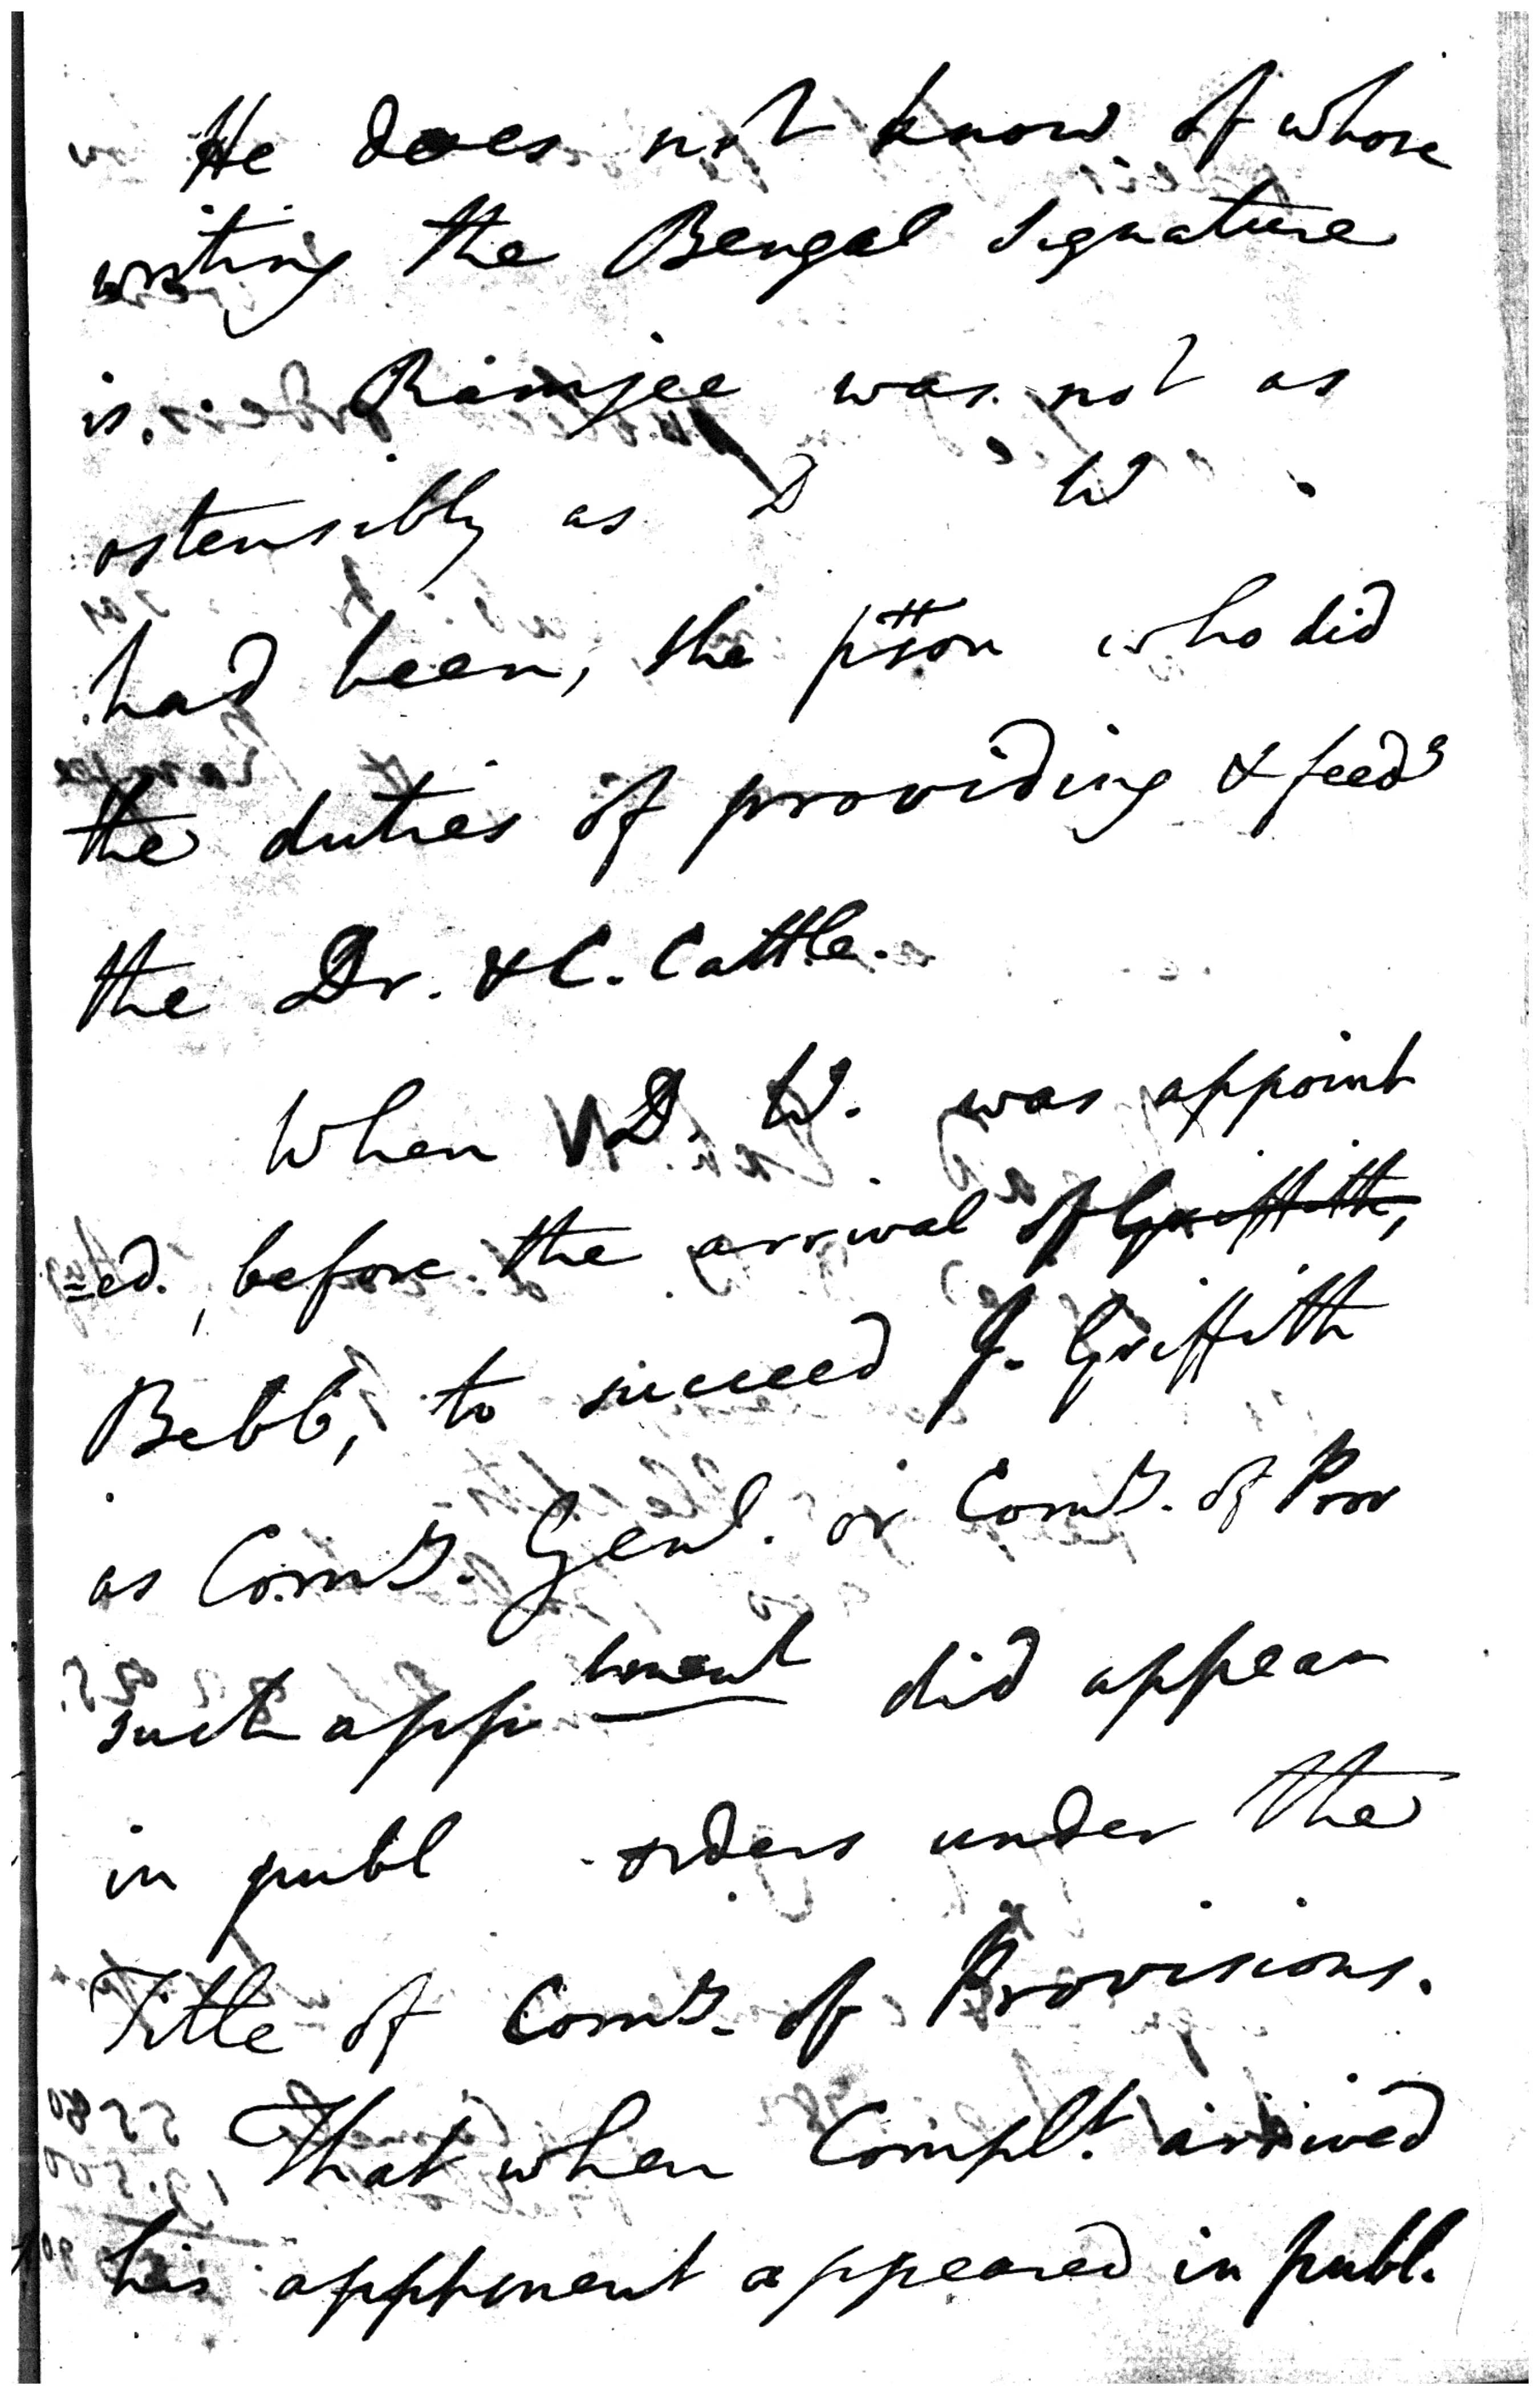 He does not know of whose
writing the Bengal Signature
is. Ramjee was not as
ostensibly as D W.
had been, the pson who did
the duties of providing & feedg
the Dr. & C. Cattle.
When D. W. was appoint
=ed, before the arrival of Griffith,
Bebb, to succeed J. Griffith
as Comy. Genl. or Comy. of Prov
such apptment did appear
in publ orders under the
Title of Comy. of Provisions.
That when Complt. arrived
his apptment appeared in publ.